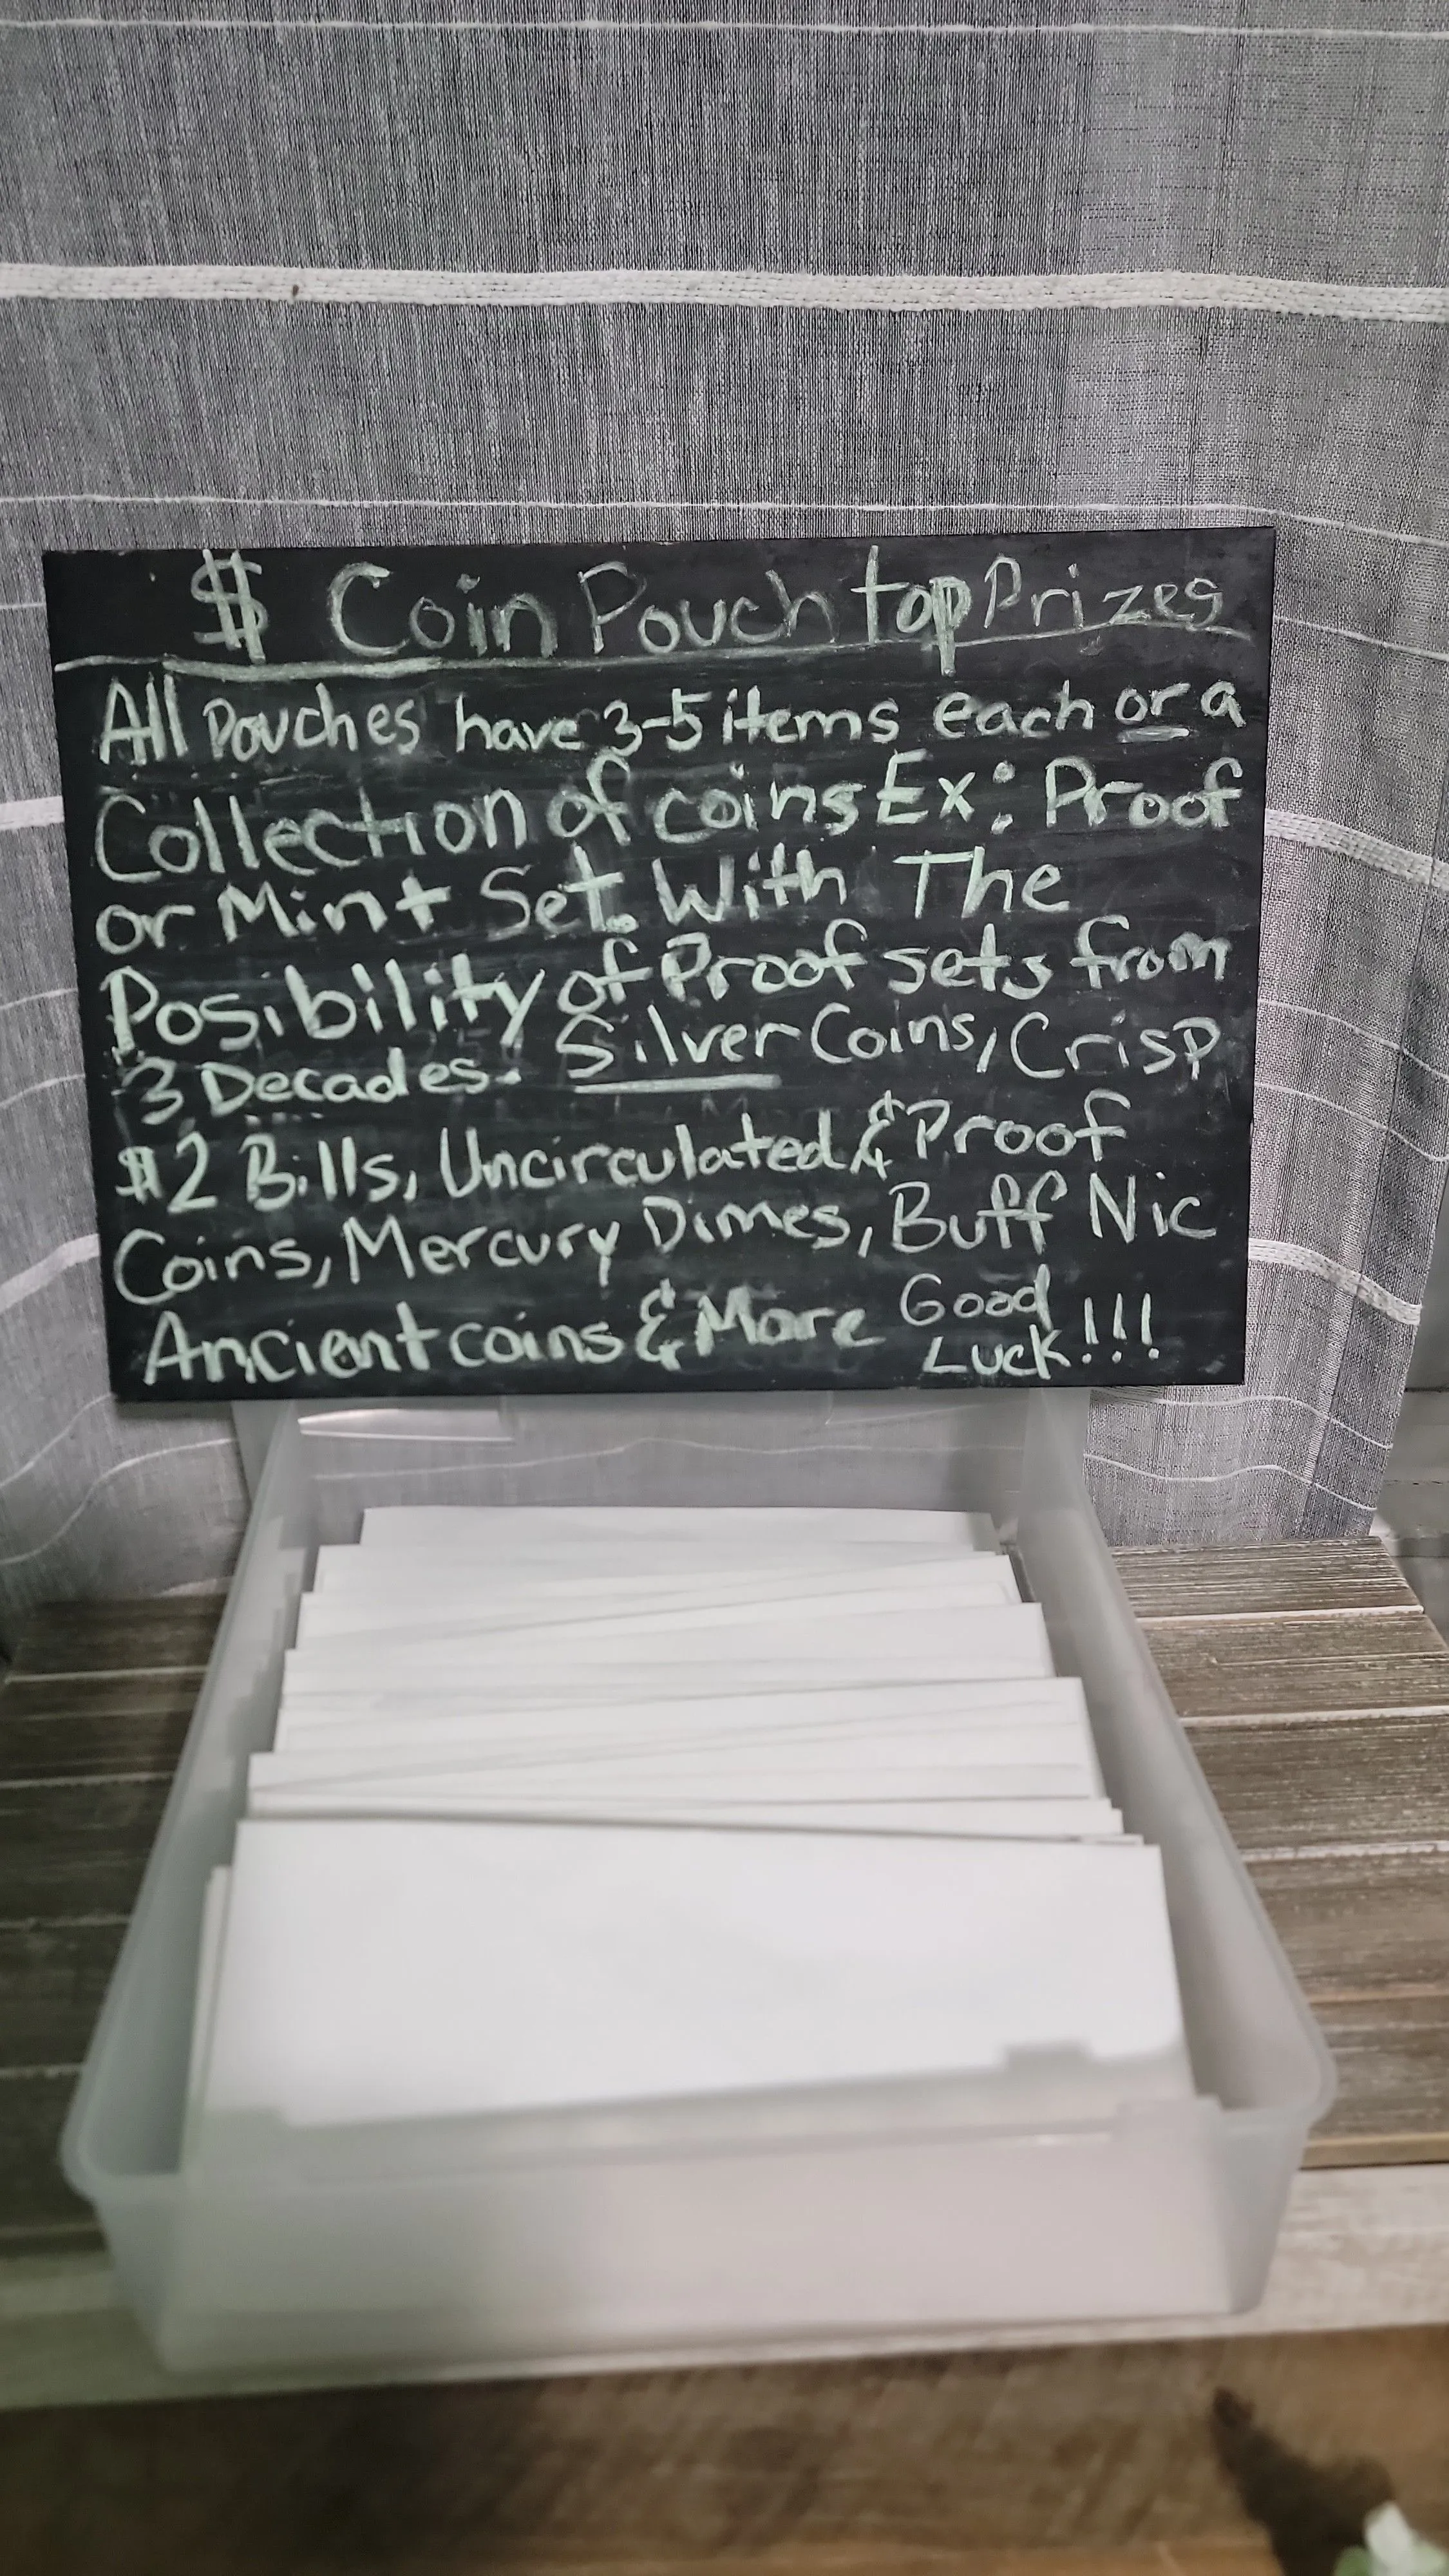 $ Coin Pouch top Prizes
All Pouches have 3-5 items each or a
Collection of coins Ex: Proof
or Mint Set. With The
Posibility of Proof sets from
3 Decades. Silver Coins, Crisp
$2 Bills, Uncirculated & Proof
Coins, Mercury Dimes, Buff Nic
Ancient coins & More Good
Luck!!!